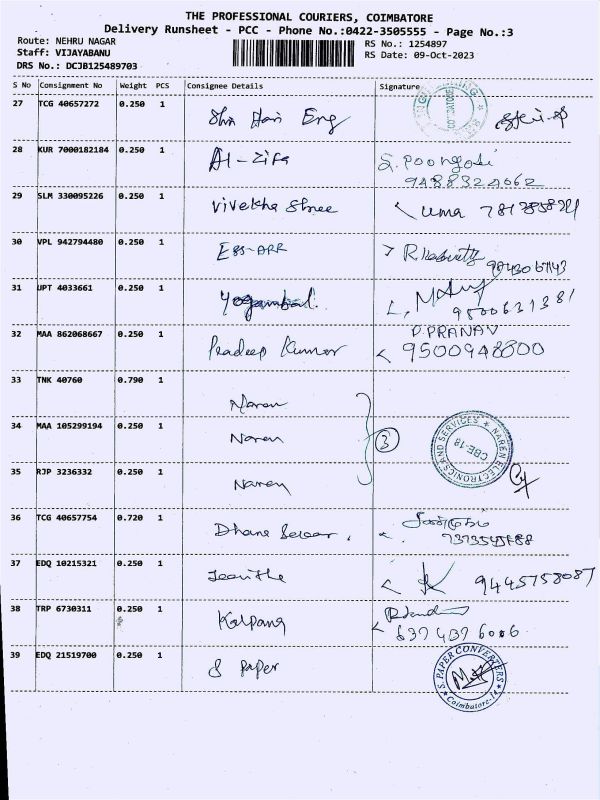 THE PROFESSIONAL COURIERS, COIMBATORE
Delivery Runsheet - PCC - Phone No.:0422-3505555 - Page No.:3
Route: NEHRU NAGAR
Staff: VIJAYABANU
DRS No.: DCJB125489703
RS No.: 1254897
RS Date: 09-Oct-2023
S No Consignment No Weight PCS Consignee Details Signature
27 TCG 40657272 0.250 1 Shri Hari Eng
28 KUR 7000182184 0.250 1 Al-Zifa S. Poongodi
9488324662
29 SLM 330095226 0.250 1 Vivekha Shree uma
30 VPL 942794480 0.250 1 ESS-ARR
31 UPT 4033661 0.250 1 Yogambal.
9500631381
32 MAA 862068667 0.250 1 Pradeep Kumar P.PRANAV
9500948800
33 TNK 40760 0.790 1 Naren
34 MAA 105299194 0.250 1 Naren 3
35 RJP 3236332 0.250 1 Naren
NAREN ELECTRONICS AND SERVICES
CBE-18
36 TCG 40657754 0.720 1 Dhana
37 EDQ 10215321 0.250 1 9445758087
38 TRP 6730311 0.250 1 Kalpana
637 437 6006
39 EDQ 21519700 0.250 1 S Paper
S. PAPER CONVERTERS
Coimbatore-14